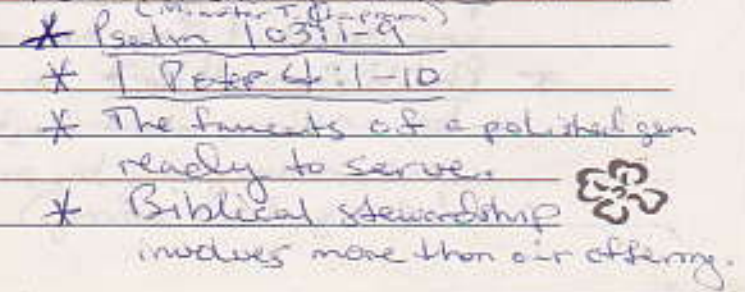 (Minister T. Chapman)
* Psalm 103:1-9
* 1 Peter 4:1-10
* The of a polished gem
ready to serve.
* Biblical stewardship
involves more than our offering.